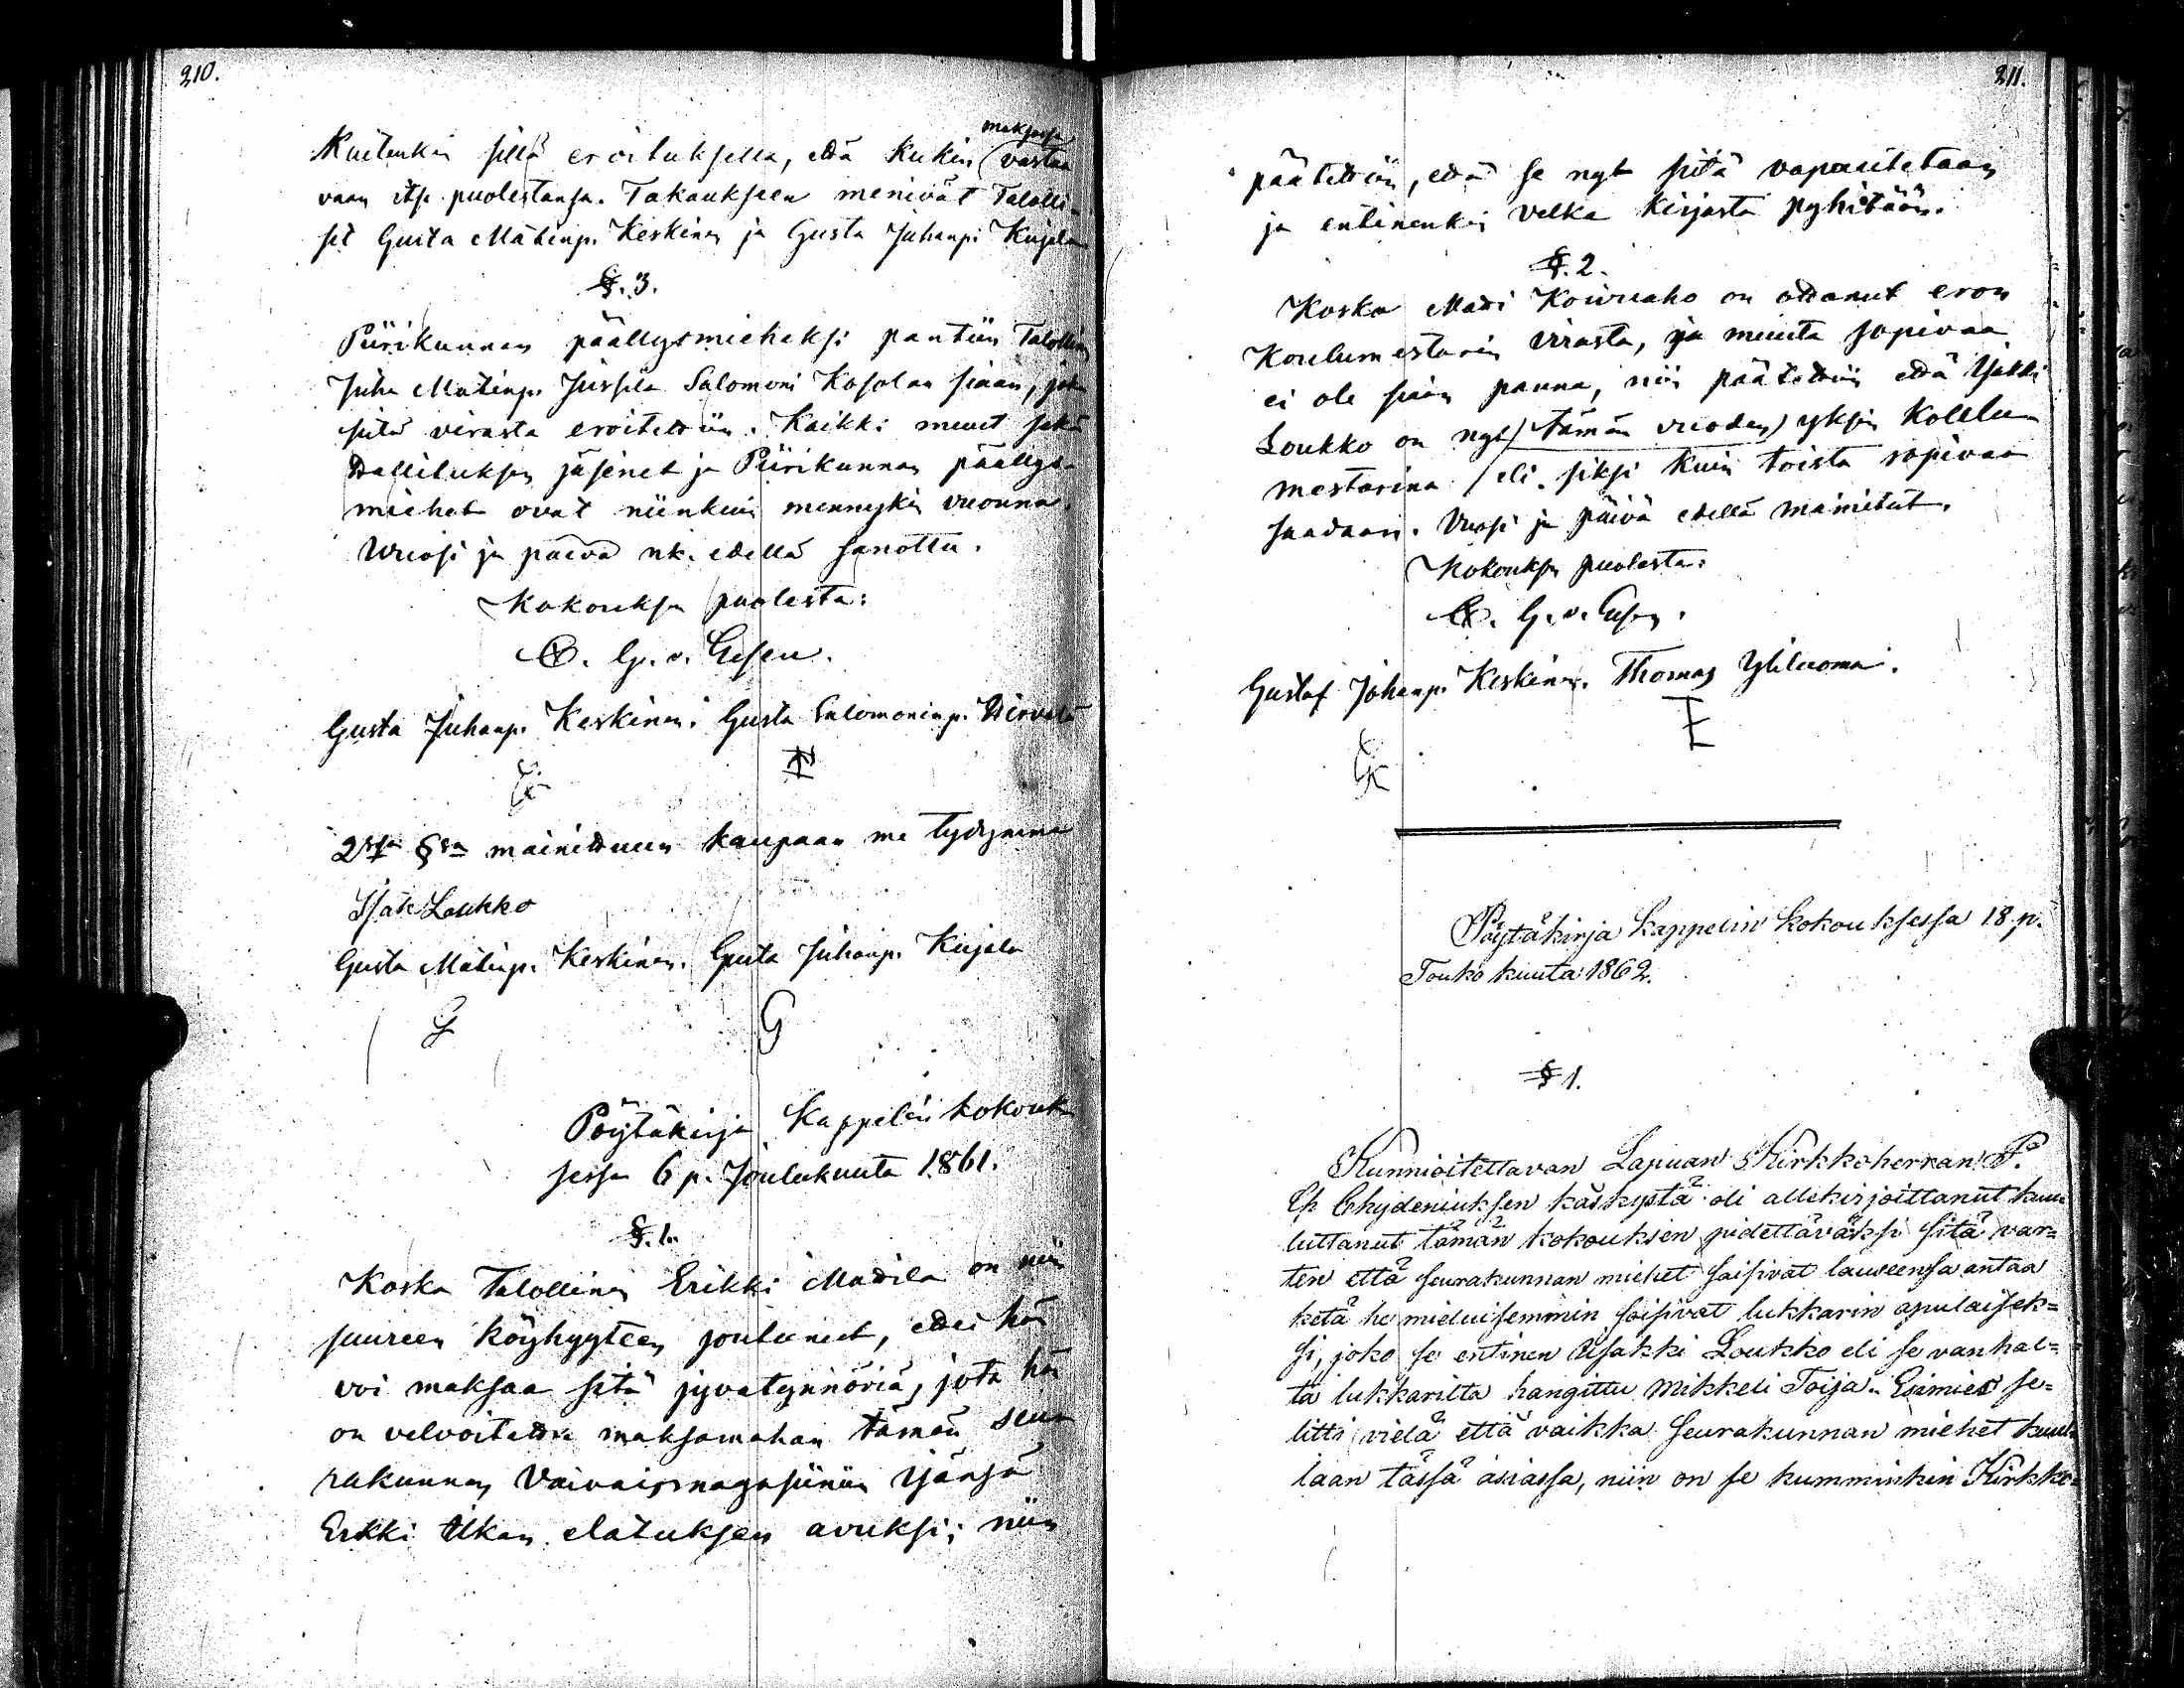 210.
maksossa
Kuitenkin sillä eroituksella, että kukin vastaa
vaan itse puolestansa. Takaukseen menivät Talolli-
set Gusta Matinp. Keskinen ja Gusta Juhanp. Kujala
§. 3.
Piirikunnan päällysmieheksi pantiin Talollinen
Juha Matinp. Jussila Salomoni Kosolan siaan, joka
siitä virasta eroitettiin. Kaikki muut sekä
Wallituksen jäsenet ja Piirikunnan päällys-
miehet ovat niinkuin mennykin vuonna.
Wuosi ja päivä nk. edellä sanottu.
Kokouksen puolesta:
C. G. v. Essen.
Gusta Juhanp. Keskinen. Gusta Salomoninp. Wirvelä
2ssa §sa mainittuun kaupaan me tydymme
Isak Loukko
Gusta Matinp. Keskinen. Gusta Juhanp. Kujala
G G
Pöytäkirja Kappelin kokouk
sessa 6 p. Joulukuuta 1861.
§. 1.
Koska Talollinen Erikki Madila on niin
suureen köyhyyteen joutunut, ettei hän
voi maksaa sitä jyvätynnöriä, jota hän
on velvoitettu maksamahan tämän seu
rakunnan Vaivaismagasiiniin Isänsä
Erkki Ilkan elatuksen avuksi; niin
211.
päätettiin, että se nyt siitä vapautetaan
ja entinenkin velka kirjasta pyhitään.
§. 2.
Koska Matti Koivuaho on ottanut eron
Koulumestarin virasta, ja muuta sopivaa
ei ole siaan panna, niin päätettiin että Isakki
Loukko on nyt (tämän vuoden) yksin Koulu
mestarina / eli siksi kuin toista sopivaa
saadaan. Vuosi ja päivä edellä mainitut.
Kokouksen puolesta:
C. G. v. Essen.
Gustaf Johanp. Keskinen. Thomas Yliluoma.
GK
Pöytäkirja Kappelin kokouksessa 18 p.
Touko kuuta 1862.
§ 1.
Kunnioitettavan Lapuan Kirkkoherran P.
Chydeniuksen käskystä oli allekirjoittanut kuu
luttanut tämän kokouksen pidettäväksi sitä var=
ten että seurakunnan miehet saisivat lauseensa antaa
ketä he mieluisemmin soisivat lukkarin apulaisek=
si, joko se entinen Isakki Loukko eli se vanhal=
ta lukkarilta hangittu Mikkeli Toija. Esimies se=
litti vielä että vaikka seurakunnan miehet kuul=
laan tässä asiassa, niin on se kumminkin Kirkko=